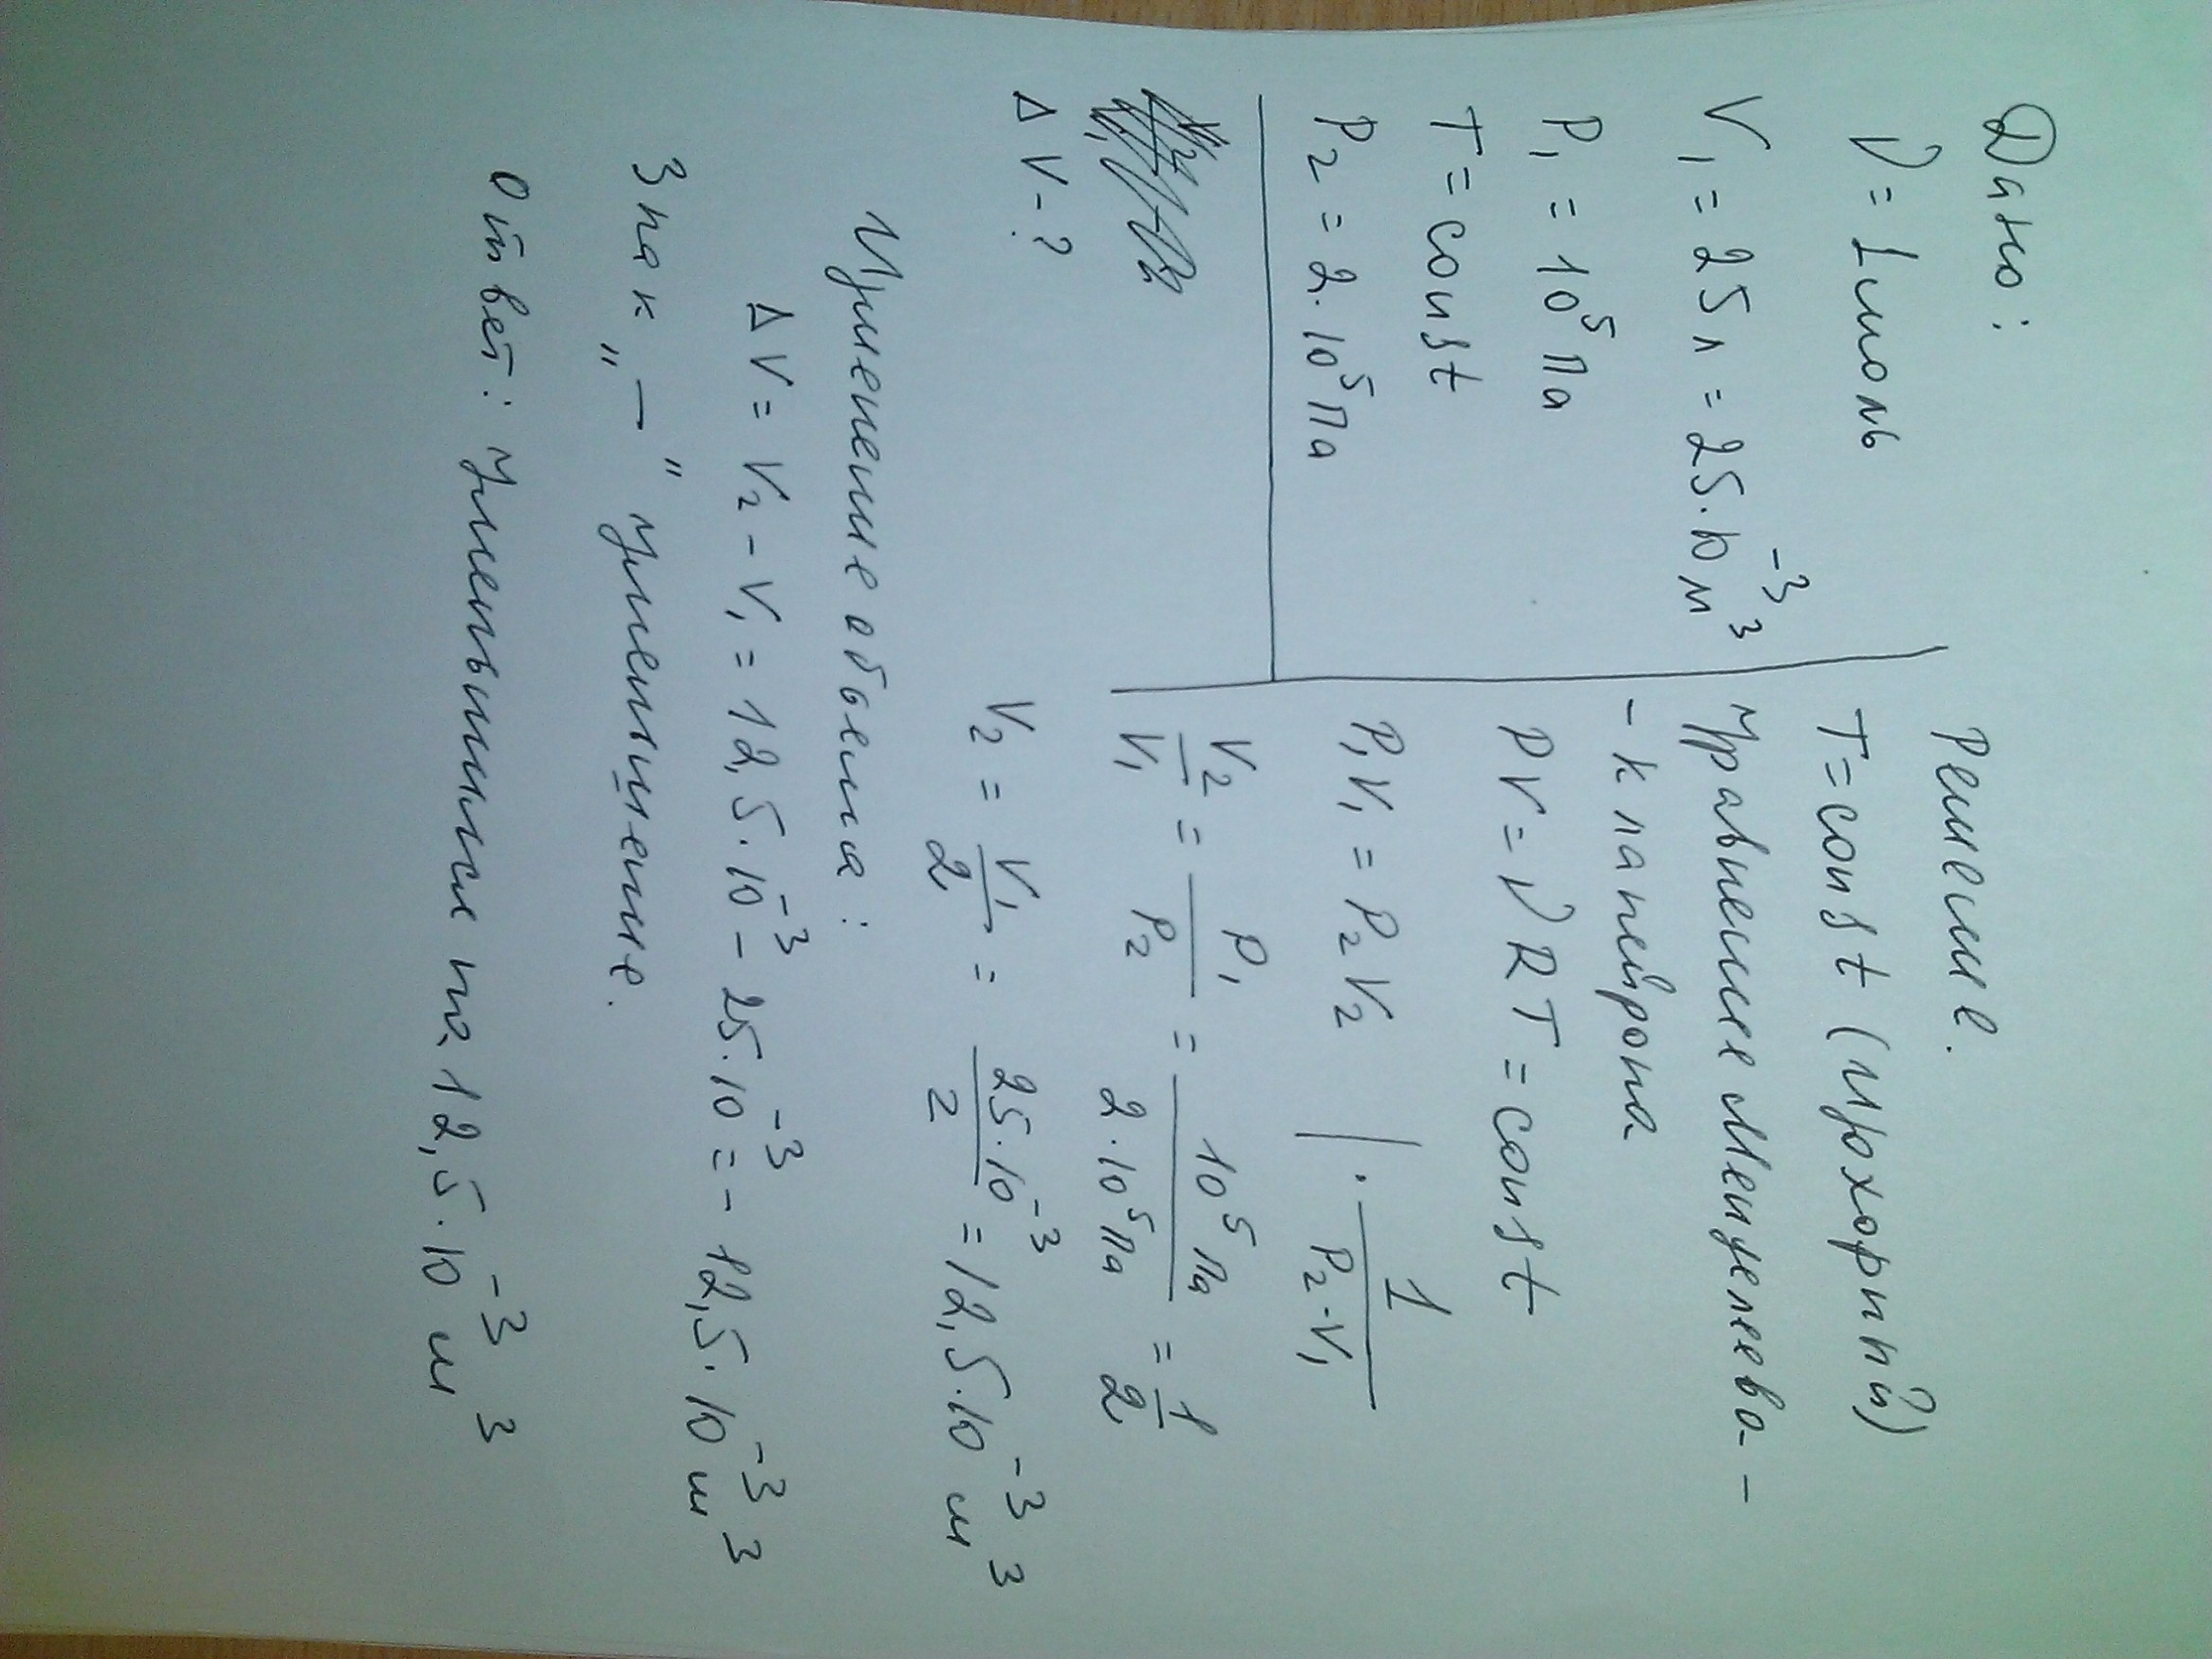 Дано:
ν = 1 моль
V₁ = 25 л = 25·10⁻³ м³
P₁ = 10⁵ Па
T = const
P₂ = 2·10⁵ Па
ΔV - ?
Решение.
T = const (изохорный)
Уравнение Менделеева -
- Клапейрона
PV = νRT = const
P₁V₁ = P₂V₂ | · 1/(P₂·V₁)
V₂/V₁ = P₁/P₂ = 10⁵ Па/2·10⁵ Па = 1/2
V₂ = V₁/2 = 25·10⁻³/2 = 12,5·10⁻³ м³
Изменение объема:
ΔV = V₂ - V₁ = 12,5·10⁻³ - 25·10⁻³ = - 12,5·10⁻³ м³
Знак „ — " уменьшение.
Ответ: уменьшился на 12,5·10⁻³ м³